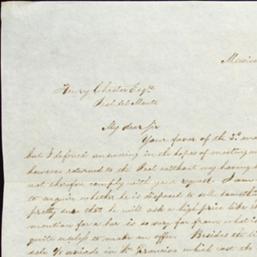 Mexico
Henry Chester Esqre
Real del Monte
My dear Sir
Your favor of the 3d
but I deferred answering in the hopes of meeting
however returned to the Real without my having
not therefore comply with your request. I am
to inquire whether he is disposed to sell
pretty sure that he will ask a high price like
mention for a bar is so very far from what
quite useless to make an offer. Besides the
which cost the